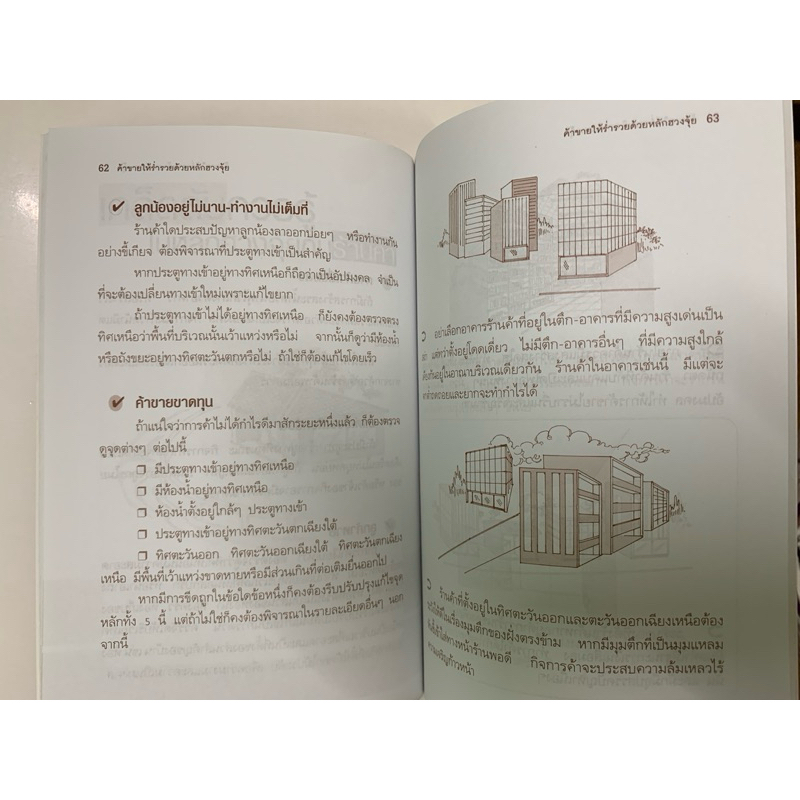 62 ค้าขายให้ร่ำรวยด้วยหลักฮวงจุ้ย
✔ ลูกน้องอยู่ไม่นาน-ทำงานไม่เต็มที่
ร้านค้าใดประสบปัญหาลูกน้องลาออกบ่อยๆ หรือทำงานกัน
อย่างขี้เกียจ ต้องพิจารณาที่ประตูทางเข้าเป็นสำคัญ
หากประตูทางเข้าอยู่ทางทิศเหนือก็ถือว่าเป็นอัปมงคล จำเป็น
ที่จะต้องเปลี่ยนทางเข้าใหม่เพราะแก้ไขยาก
ถ้าประตูทางเข้าไม่ได้อยู่ทางทิศเหนือ ก็ยังคงต้องตรวจตรง
ทิศเหนือว่าพื้นที่บริเวณนั้นเว้าแหว่งหรือไม่ จากนั้นก็ดูว่ามีห้องน้ำ
หรือถังขยะอยู่ทางทิศตะวันตกหรือไม่ ถ้าใช่ก็ต้องแก้ไขโดยเร็ว
✔ ค้าขายขาดทุน
ถ้าแน่ใจว่าการค้าไม่ได้กำไรดีมาสักระยะหนึ่งแล้ว ก็ต้องตรวจ
ดูจุดต่างๆ ต่อไปนี้
❐ มีประตูทางเข้าอยู่ทางทิศเหนือ
❐ มีห้องน้ำอยู่ทางทิศเหนือ
❐ ห้องน้ำตั้งอยู่ใกล้ๆ ประตูทางเข้า
❐ ประตูทางเข้าอยู่ทางทิศตะวันตกเฉียงใต้
❐ ทิศตะวันออก ทิศตะวันออกเฉียงใต้ ทิศตะวันตกเฉียง
เหนือ มีพื้นที่เว้าแหว่งขาดหายหรือมีส่วนเกินที่ต่อเติมยื่นออกไป
หากมีการขีดถูกในข้อใดข้อหนึ่งก็คงต้องรีบปรับปรุงแก้ไขจุด
หลักทั้ง 5 นี้ แต่ถ้าไม่ใช่ก็คงต้องพิจารณาในรายละเอียดอื่นๆ นอก
จากนี้
ค้าขายให้ร่ำรวยด้วยหลักฮวงจุ้ย 63
อย่าเลือกอาคารร้านค้าที่อยู่ในตึก-อาคารที่มีความสูงเด่นเป็น
แต่ทว่าตั้งอยู่โดดเดี่ยว ไม่มีตึก-อาคารอื่นๆ ที่มีความสูงใกล้
เคียงกันอยู่ในอาณาบริเวณเดียวกัน ร้านค้าในอาคารเช่นนี้ มีแต่จะ
และยากจะทำกำไรได้
ร้านค้าที่ตั้งอยู่ในทิศตะวันออกและตะวันออกเฉียงเหนือต้อง
ในเรื่องมุมตึกของฝั่งตรงข้าม หากมีมุมตึกที่เป็นมุมแหลม
ทางหน้าร้านพอดี กิจการค้าจะประสบความล้มเหลวไร้
ความเจริญก้าวหน้า